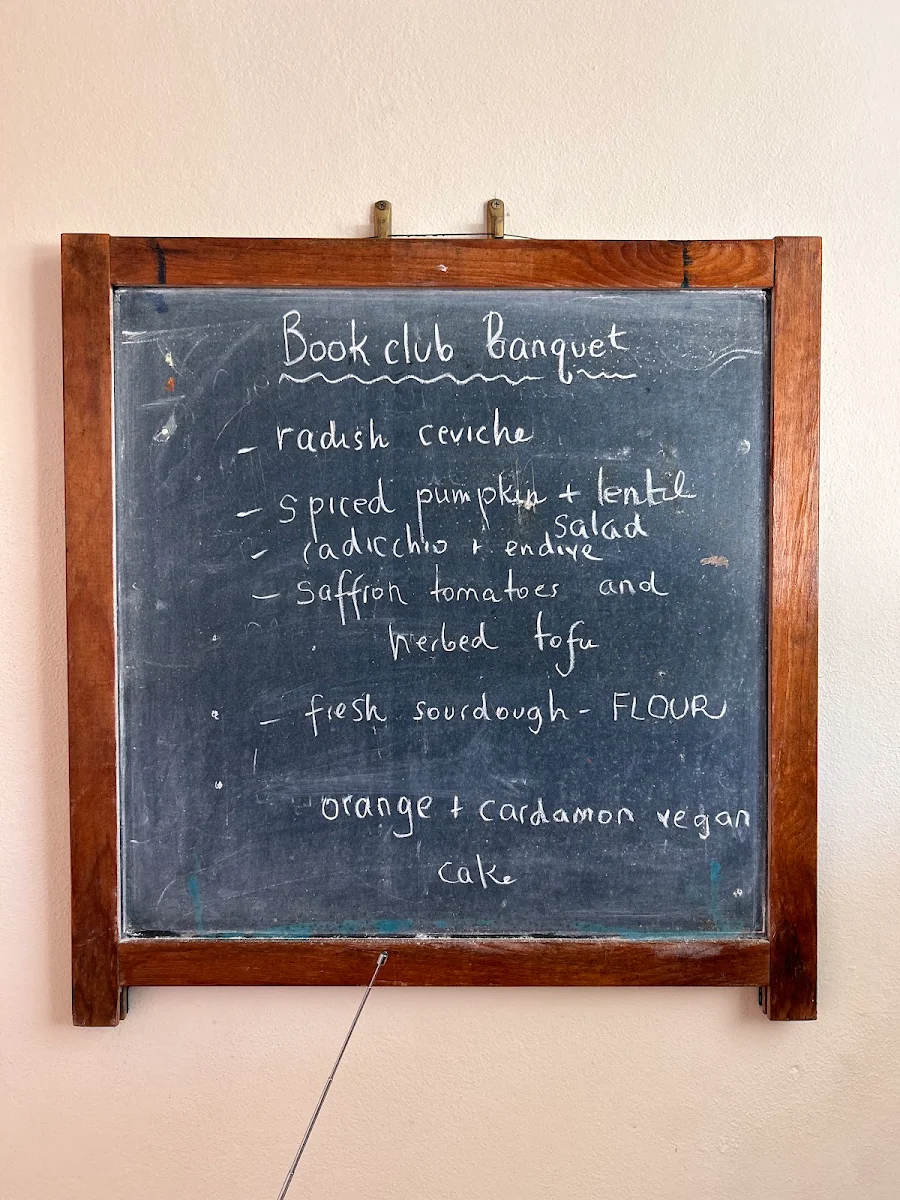 Book club Banquet
- radish ceviche
- spiced pumpkin + lentil
salad
- radicchio + endive
- saffron tomatoes and
herbed tofu
- fresh sourdough - FLOUR
orange + cardamon vegan
cake